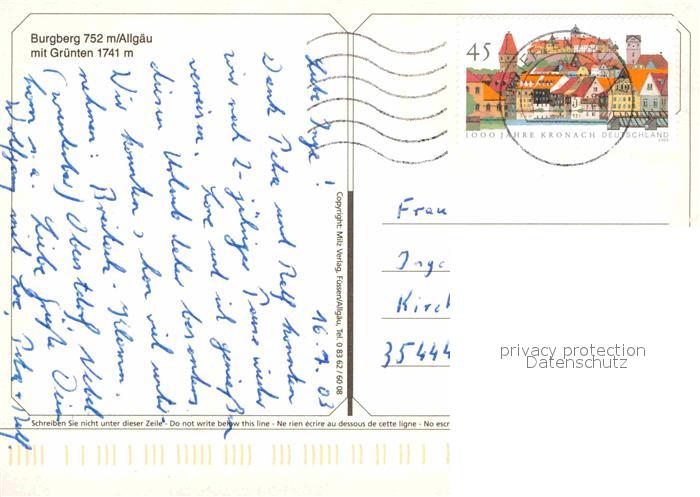 Burgberg 752 m/Allgäu
mit Grünten 1741 m
16.7.03
Liebe Inge!
Dank Petra und Ralf konnten
wir nach 2-jähriger Pause wieder
verreisen. Lore und ich genießen
diesen Urlaub daher besonders.
Wir konnten schon viel unter-
nehmen: Breitach-Klamm.
(wunderbar) Oberstdorf, Nebel
horn u.a. Liebe Grüße Dein
Wolfgang mit Lore, Petra + Ralf.
Copyright: Milz Verlag, Füssen/Allgäu, Tel. 0 83 62/60 08
45
1000 JAHRE KRONACH DEUTSCHLAND
2003
Frau
Inge
Kirch
35444
privacy protection
Datenschutz
Schreiben Sie nicht unter dieser Zeile - Do not write below this line - Ne rien écrire au dessous de cette ligne - No scr